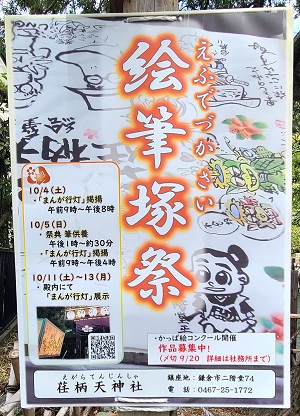 絵筆塚祭
えふでづかさい
10/4(土)
・「まんが行灯」掲揚
午前9時～午後8時
10/5(日)
・祭典 筆供養
午後1時～約30分
・「まんが行灯」掲揚
午前9時～午後4時
10/11(土)～13(月)
・殿内にて
「まんが行灯」展示
・かっぱ絵コンクール開催
作品募集中!
(〆切 9/20 詳細は社務所まで)
えがらてんじんしゃ
荏柄天神社
鎮座地:鎌倉市二階堂74
電 話:0467-25-1772